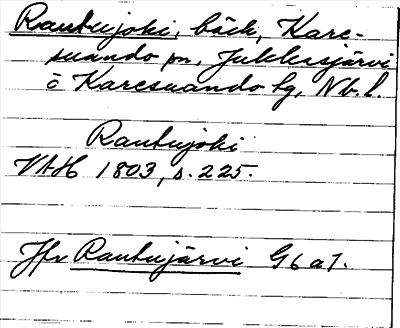 Rautujoki, bäck, Kare-
suando sn, Jukkasjärvi
o Karesuando tg, Nb. l.
Rautujoki
VAH 1803, s. 225.
Jfr Rautujärvi G6a1.